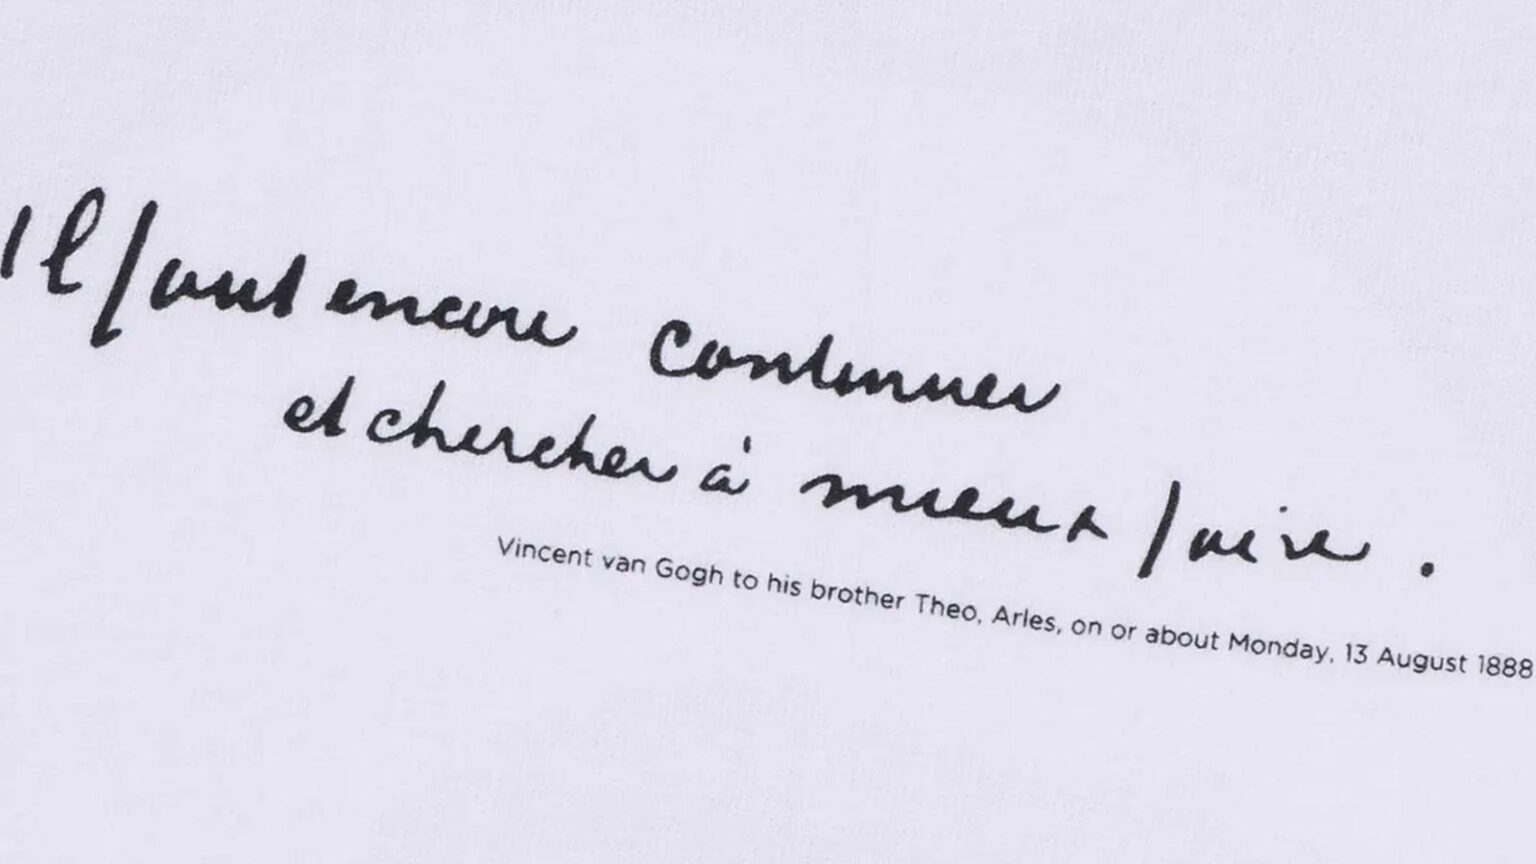 Il faut encore continuer
et chercher à mieux faire.
Vincent van Gogh to his brother Theo, Arles, on or about Monday, 13 August 1888